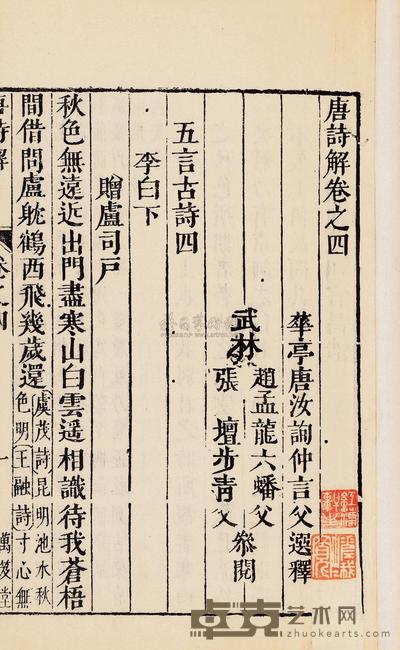 唐詩解卷之四
華亭唐汝詢仲言父選釋
趙孟龍六蟠父
武林
張壇步青父
叅閱
五言古詩四
李白下
贈盧司戸
秋色無遠近出門盡寒山白雲遥相識待我蒼梧
間借問盧躭鶴西飛幾歲還虞茂詩昆明池水秋
色明王融詩寸心無
唐詩解
卷之四
一
萬笈堂
卓克艺术网
www.zhuokearts.com